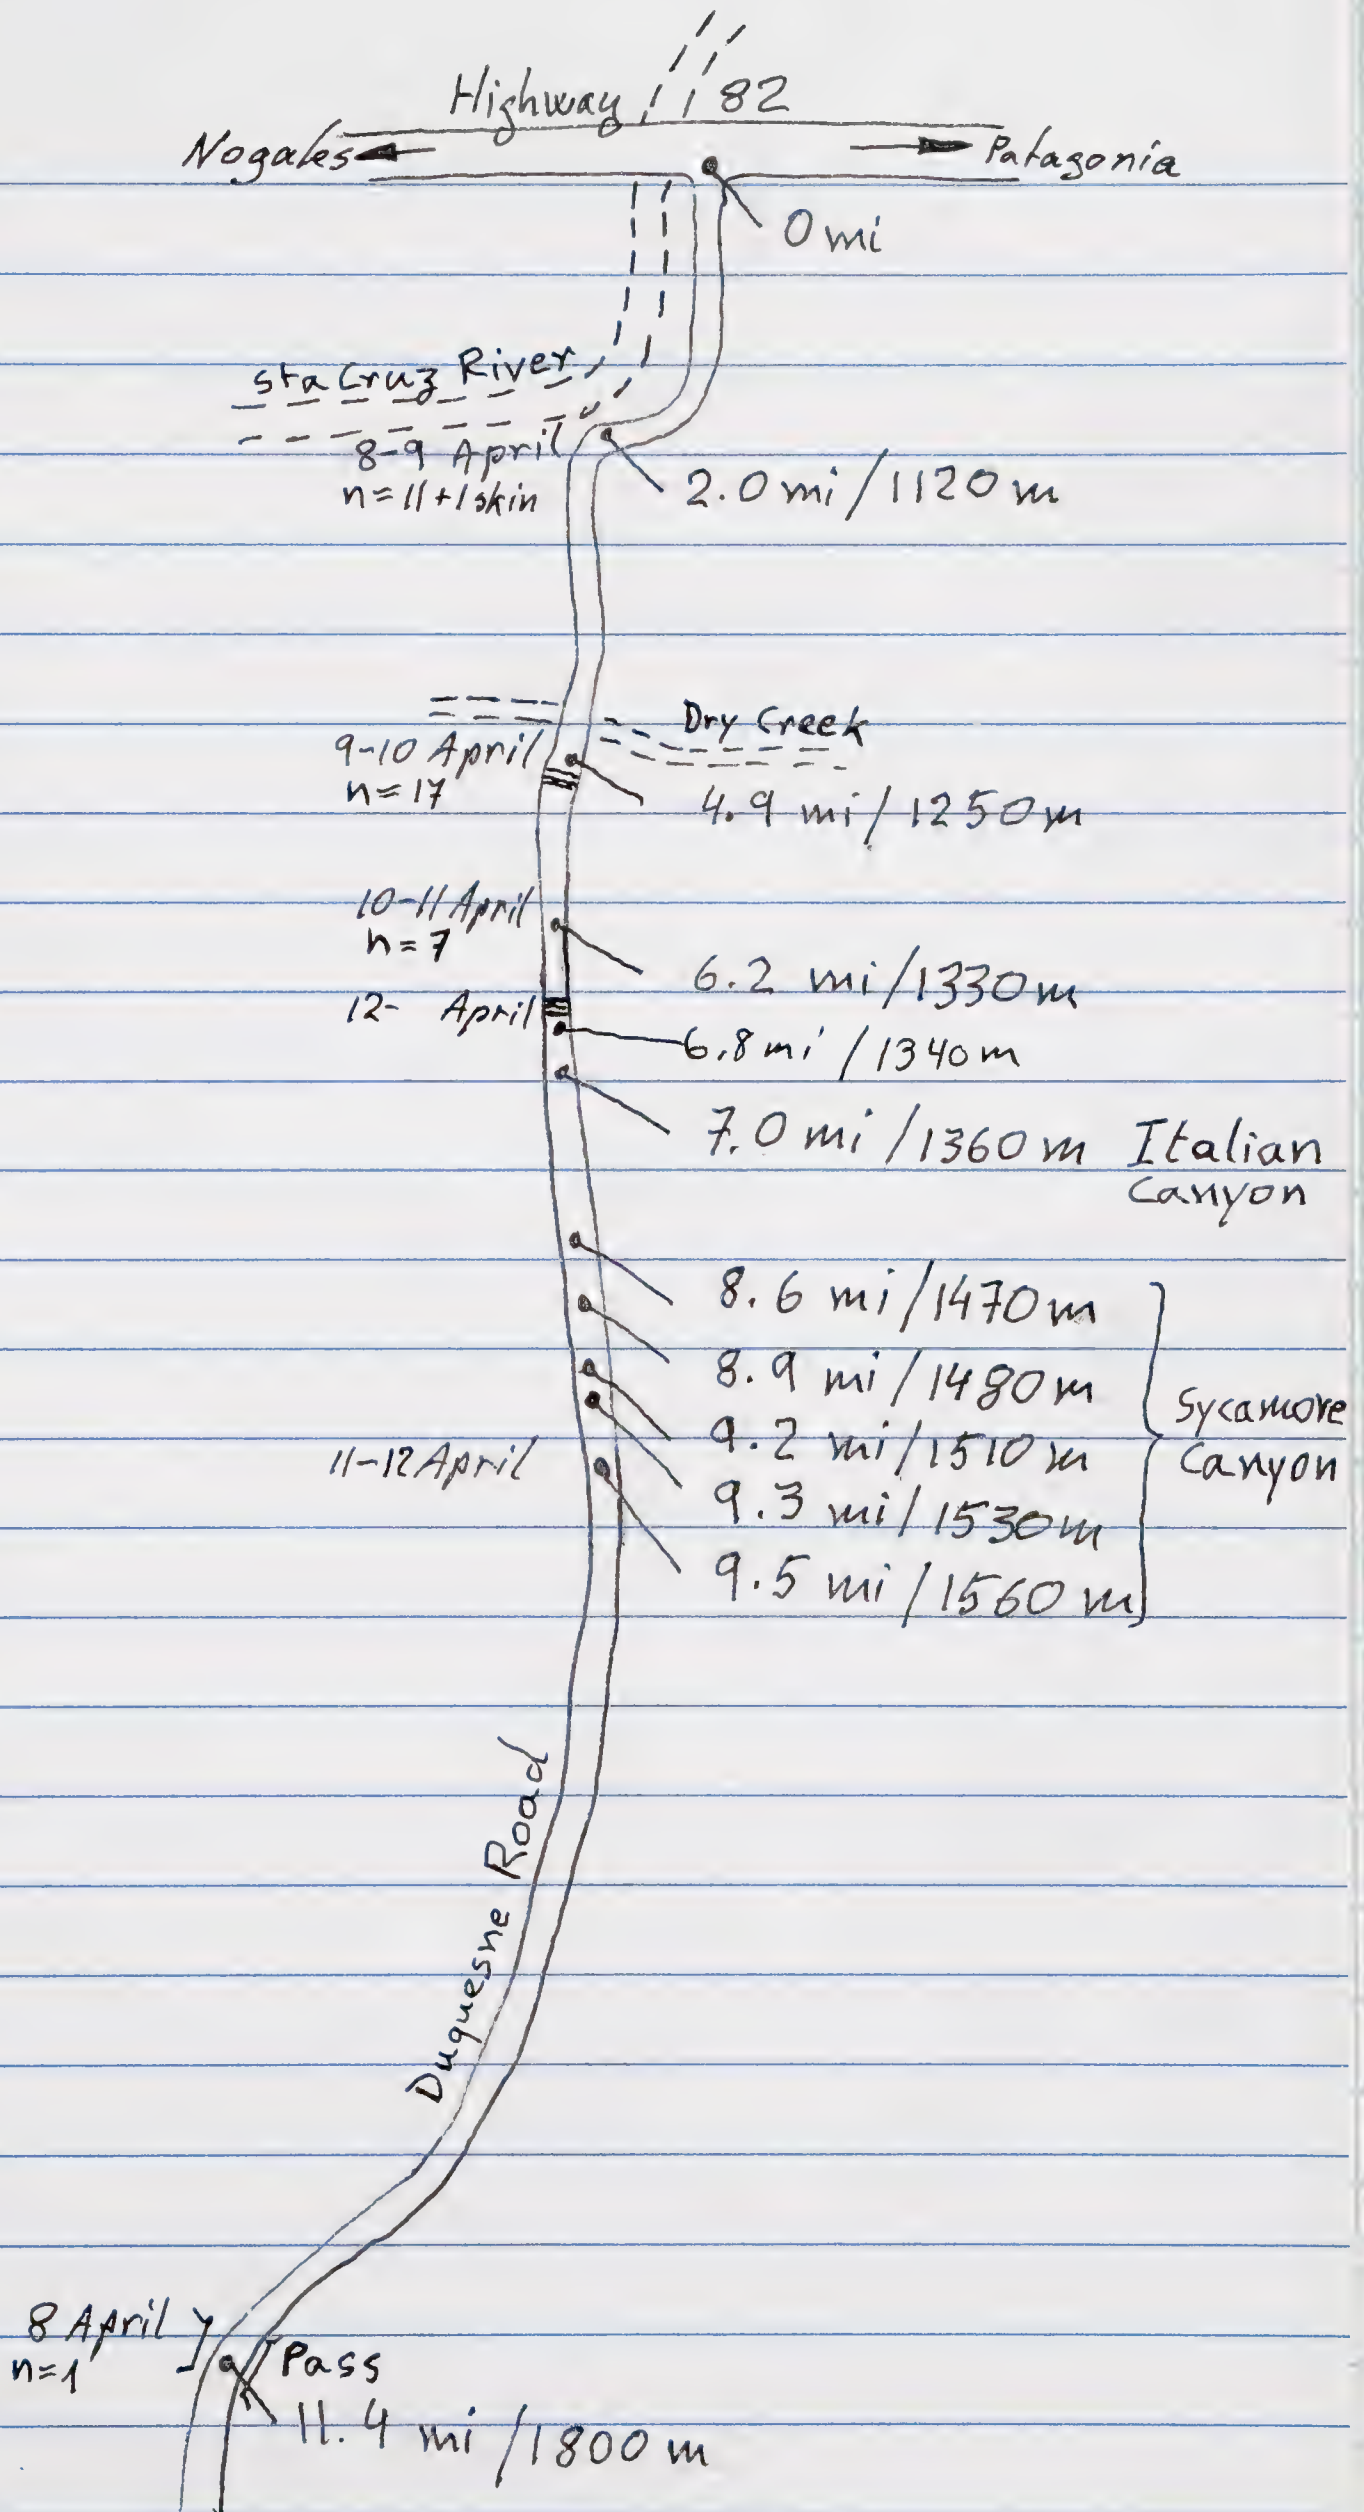 Highway 82
Nogales
Patagonia
0 mi
sta Cruz River
8-9 April
n=11+1 skin
2.0 mi/1120 m
Dry Creek
9-10 April
n=17
4.9 mi/1250 m
10-11 April
n=7
6.2 mi/1330 m
12- April
6.8 mi/1340 m
7.0 mi/1360 m Italian
Canyon
8.6 mi/1470 m
8.9 mi/1480 m
Sycamore
Canyon
9.2 mi/1510 m
11-12 April
9.3 mi/1530 m
9.5 mi/1560 m
Duquesne Road
8 April
n=1
Pass
11.4 mi/1800 m